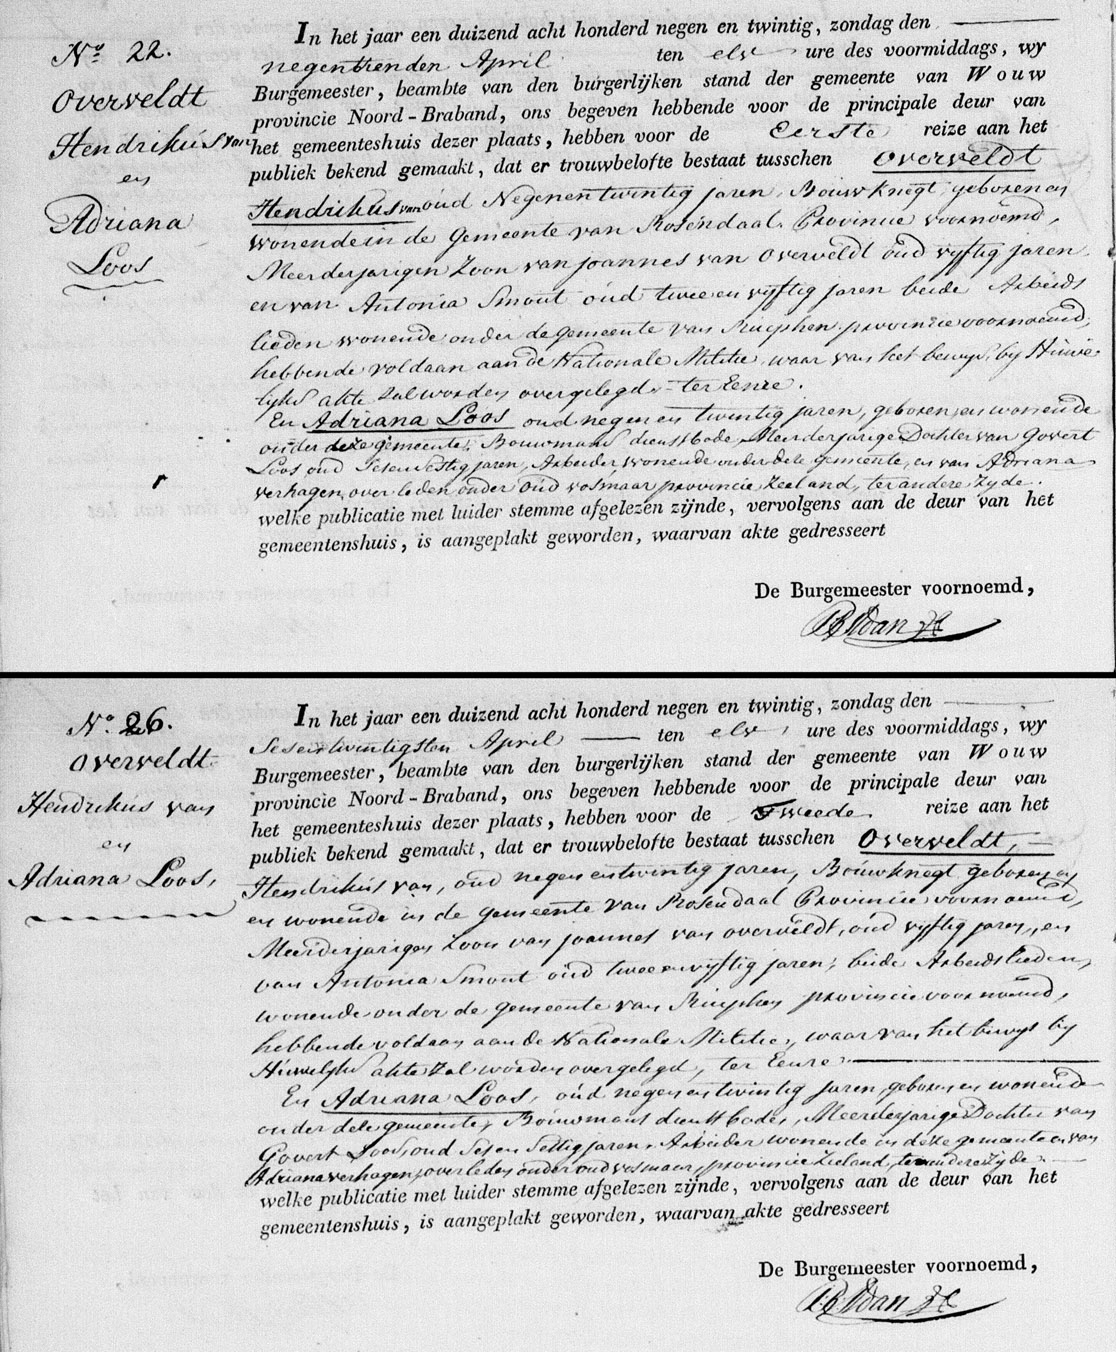 No 22.
Overveldt
Hendrikus van
en
Adriana
Loos
In het jaar een duizend acht honderd negen en twintig, zondag den
negentienden April ten elf ure des voormiddags, wy
Burgemeester, beambte van den burgerlijken stand der gemeente van Wouw
provincie Noord-Braband, ons begeven hebbende voor de principale deur van
het gemeenteshuis dezer plaats, hebben voor de Eerste reize aan het
publiek bekend gemaakt, dat er trouwbelofte bestaat tusschen Overveldt
Hendrikus van oud Negenentwintig jaren, Bouwknegt geboren en
wonende in de Gemeente van Rosendaal Provincie voornoemd,
Meerderjarigen Zoon van Joannes van Overveldt oud vyftig jaren
en van Antonia Smout oud twee en vyftig jaren beide Arbeids
lieden wonende onder de gemeente van Rucphen provincie voornoemd,
hebbende voldaan aan de Nationale Militie, waar van het bewys by Huwe
lyks akte zal worden overgelegd, ter Eenre.
En Adriana Loos oud negen en twintig jaren, geboren en wonende
onder deze gemeente, Bouwmans dienstbode, Meerderjarige Dochter van Govert
Loos oud Sesen Sestig jaren, Arbeider wonende onder dese gemeente, en van Adriana
verhagen, overleden onder oud vosmaar provincie Zeeland, ter andere Zyde.
welke publicatie met luider stemme afgelezen zijnde, vervolgens aan de deur van het
gemeentenshuis, is aangeplakt geworden, waarvan akte gedresseert
De Burgemeester voornoemd,
No. 26.
Overveldt
Hendrikus van
en
Adriana Loos,
In het jaar een duizend acht honderd negen en twintig, zondag den
Sesentwintigsten April ten elf ure des voormiddags, wy
Burgemeester, beambte van den burgerlijken stand der gemeente van Wouw
provincie Noord-Braband, ons begeven hebbende voor de principale deur van
het gemeenteshuis dezer plaats, hebben voor de Tweede reize aan het
publiek bekend gemaakt, dat er trouwbelofte bestaat tusschen Overveldt,
Hendrikus van, oud negen entwintig jaren, Bouwknegt geboren en
en wonende in de Gemeente van Rosendaal Provincie voornoemd,
Meerderjarigen Zoon van Joannes van overveldt, oud vyftig jaren, en
van Antonia Smout oud twee envyftig jaren, beide Arbeidslieden,
wonende onder de gemeente van Rucphen provincie voornoemd,
hebbende voldaan aan de Nationale Militie, waar van het bewys by
Huwelyks akte Zal worden overgelegd, ter Eenre.
En Adriana Loos, oud negen entwintig jaren, geboren en wonende
onder dese gemeente, Bouwmans dienstbode, Meerderjarige Dochter van
Govert Loos, oud Sesen Sestig jaren, Arbeider wonende in deze gemeente en van
Adriana verhagen, overleden onder oud vosmaar, provincie Zeeland, ter andere Zyde.
welke publicatie met luider stemme afgelezen zijnde, vervolgens aan de deur van het
gemeentenshuis, is aangeplakt geworden, waarvan akte gedresseert
De Burgemeester voornoemd,